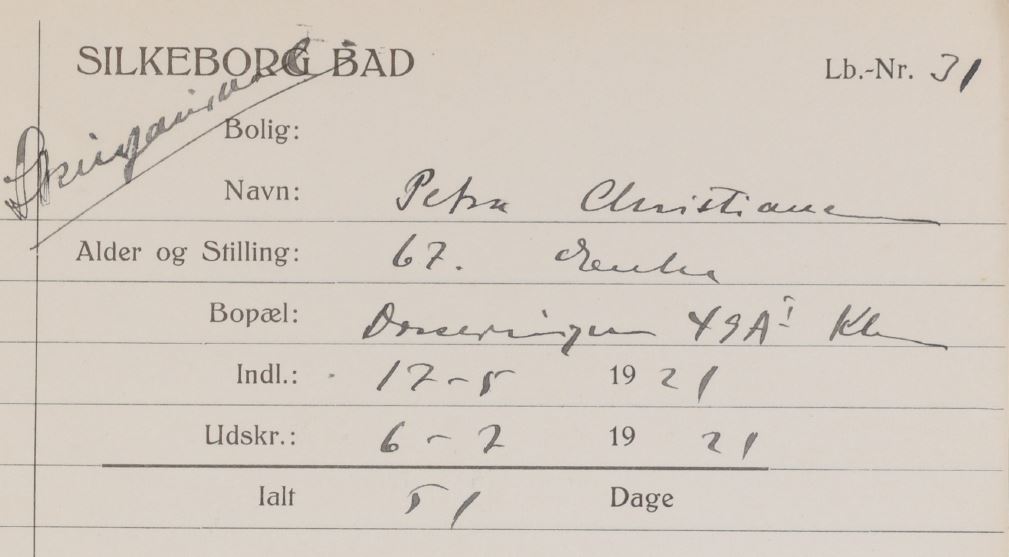 SILKEBORG BAD
Lb.-Nr. 31
Bolig:
Navn: Petra Christiane
Alder og Stilling: 67. Enke
Bopæl: Dosseringen 49A I Kh
Indl.: 17-5 1921
Udskr.: 6-7 1921
Ialt 51 Dage